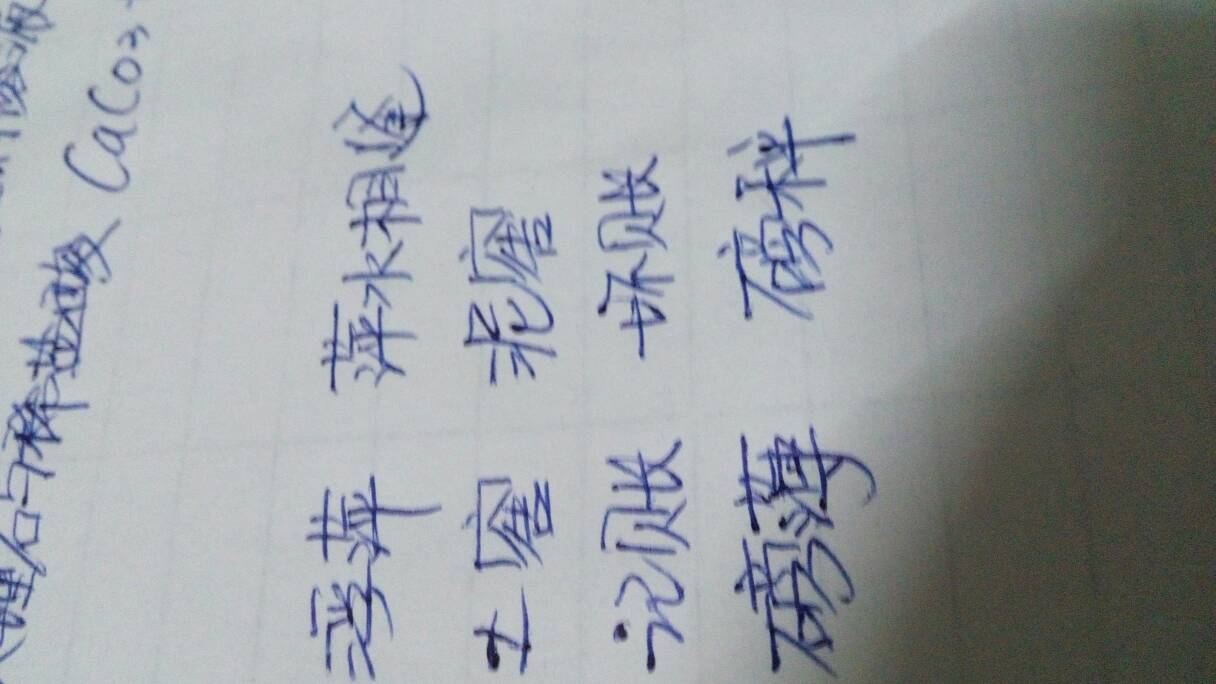 理石与稀盐酸 CaCo₃
浮萍 萍水相逢
土窖 窖
记账 坏账
磅礴 磅秤